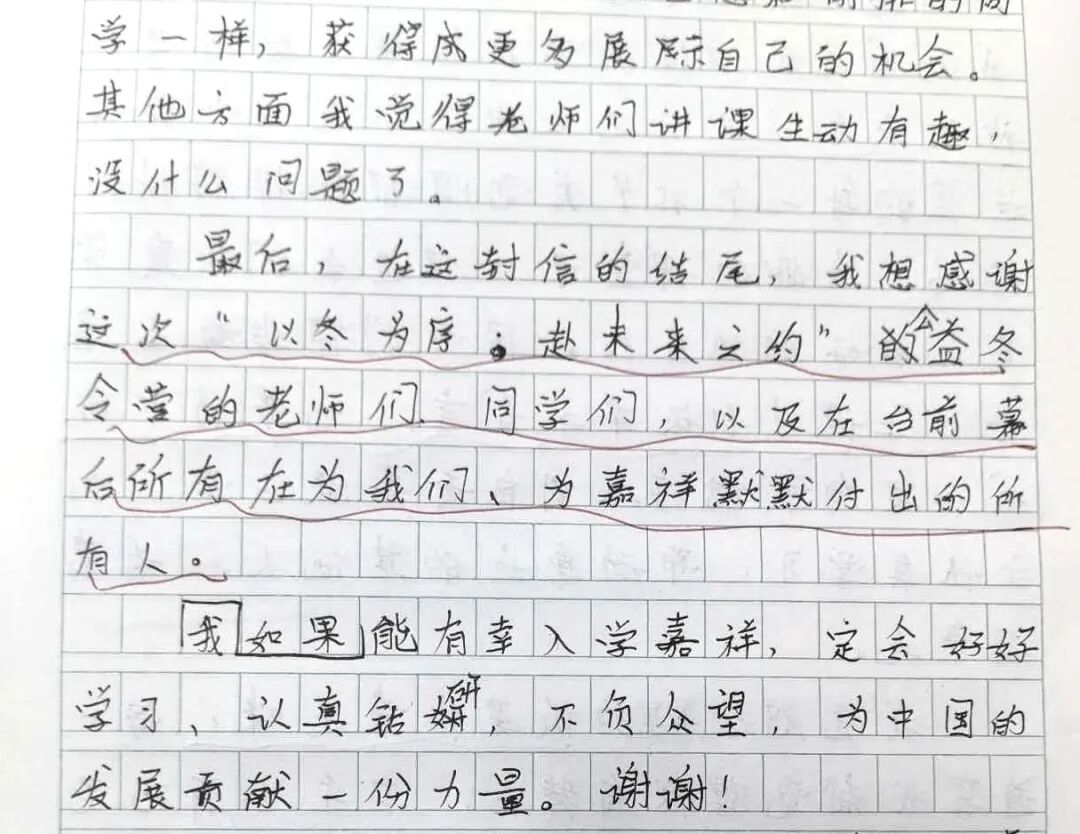 的同
学一样，获得成更多展际自己的机会。
其他方面我觉得老师们讲课生动有趣，
没什么问题了。
最后，在这封信的结尾，我想感谢
这次“以冬为序·赴未来之约”的公益冬
令营的老师们、同学们，以及在台前幕
后所有在为我们、为嘉祥默默付出的所
有人。
我如果能有幸入学嘉祥，定会好好
学习、认真钻研，不负众望，为中国的
发展贡献一份力量。谢谢！